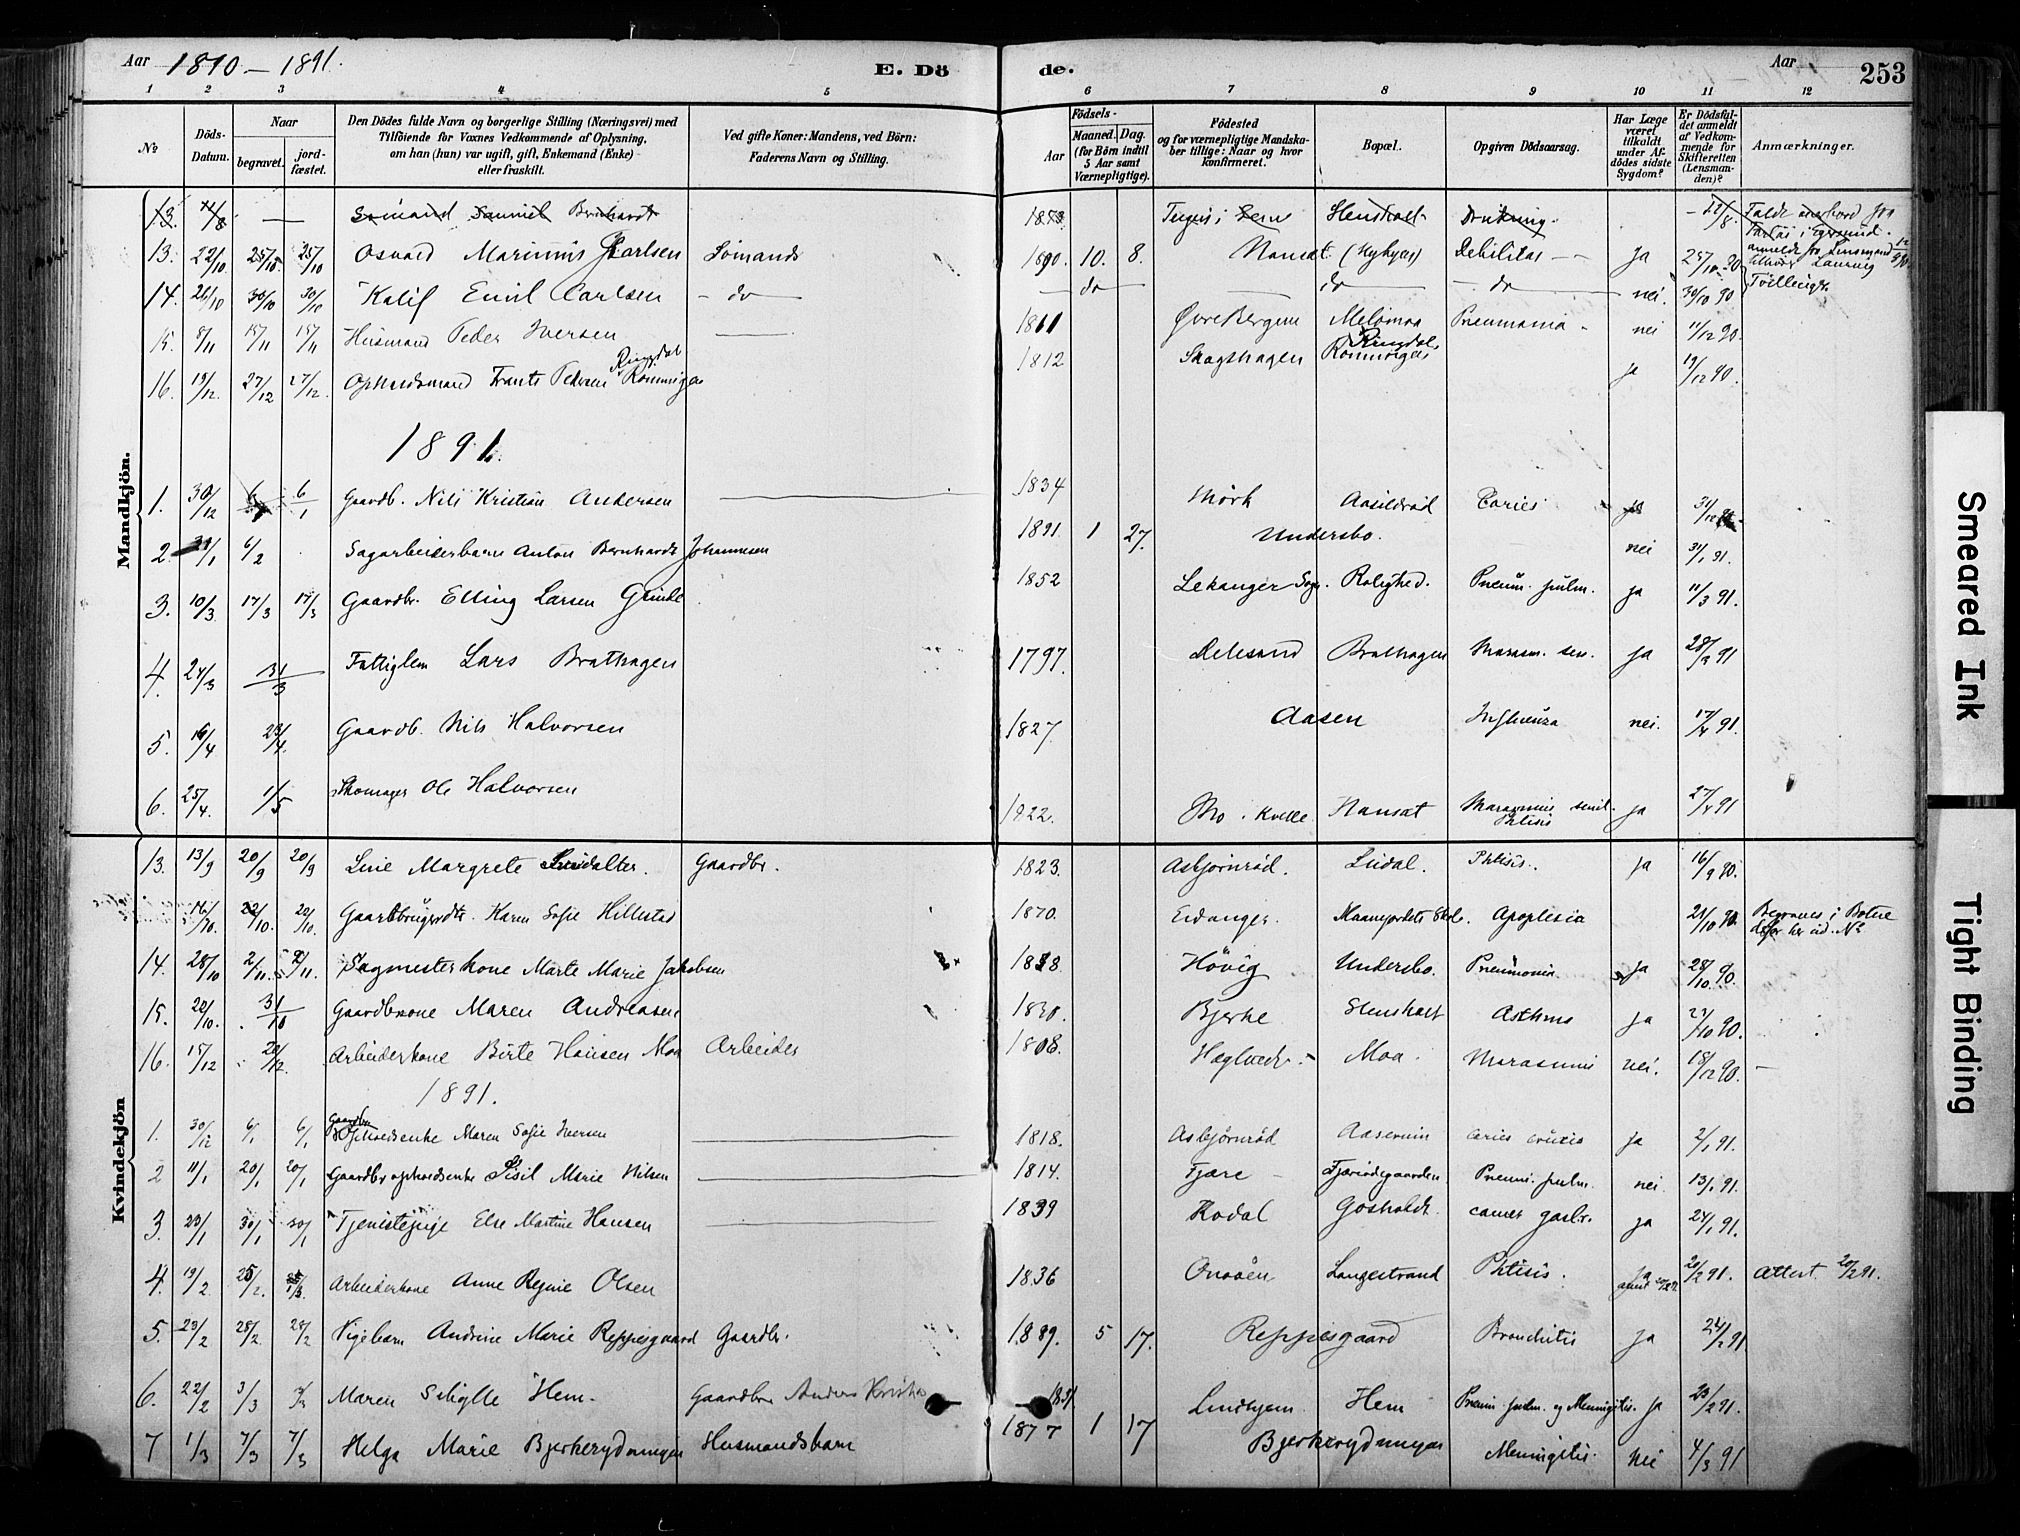 Aar 1890 – 1891. E. Dö de. Aar 253
1 2 3 4 5 6 7 8 9 10 11 12
No Döds-Datum. Naar begravet. jordfæstet. Den Dödes fulde Navn og borgerlige Stilling (Næringsvei) med Tilföiende for Voxnes Vedkommende af Oplysning, om han (hun) var ugift, gift, Enkemand (Enke) eller fraskilt. Ved gifte Koner: Mandens, ved Börn: Faderens Navn og Stilling. Födsels- Aar Maaned. Dag. (for Börn indtil 5 Aar samt Værnepligtige). Födested og for værnepligtige Mandskaber tillige: Naar og hvor konfirmeret. Bopæl. Opgiven Dödsaarsag. Har Læge været tilkaldt under Afdödes sidste Sygdom? Er Dödsfaldet anmeldt af Vedkommende for Skifteretten (Lensmanden)? Anmærkninger.
Mandkjön.
13. Sömand Samuel Bernhardt Drukning
13. 22/10 25/10 25/10 Osvald Marinius Carlsen Sömands 1890. 10. 8. Nansæt Debilitas ja 25/10 90
14. 26/10 30/10 30/10 Emil Carlsen – do – do do do nei. 30/10 90 Tvillinger
15. 8/11 15/11 15/11 Husmand Peder Iversen 1811 Övre Bergan Pneumonia nei 11/12 90.
16. 19/12. 27/12 27/12. Opholdsmand Frants Pedersen Ringdal Rönningen 1812 Skagshagen Ringdal Rönningen ja 19/12 90.
1891.
1. 30/12 6/1 Gaardb. Nils Kristian Andersen 1834 Mörk Aasildröd Caries ja 31/12
2. 31/1 6/2 Sagarbeiderbarn Anton Bernhardt Johannesen 1891. 1 27. Undersbo. nei 31/1 91.
3. 10/3 17/3 17/3 Gaardbr. Elling Larsen Grinde 1852 Lekanger Sogn. Rolighed. Pneum. pulm. ja 11/3 91.
4. 24/3 31/3 Fattiglem Lars Brathagen 1797. Brathagen Marasm. sen. ja 28/3 91
5. 16/4 23/4. Gaardb. Nils Halvorsen 1827. Aasen Influenza nei. 17/4 91.
6. 25/4. 1/5 Skomager Ole Halvorsen 1822. Mo i Kvelle Nansæt Marasmus senil. Phtisis ja 27/4 91
Kvindekjön
13. 13/9 20/9 20/9 Line Margrete Gaardbr. 1823. Asbjörnröd. Lidal. Phtisis. ja 16/9 90.
16/10. 22/10. 20/10. Gaardbrugerdtr. Karen Sofie Hillestad 1870. Eidanger. Apoplexia 21/10 90. Begraves i Botne derfor her ud. No
14. 28/10 2/11. 2/11. Sagmesterkone Marte Marie Jakobsen 1838. Hövig Undersbo. Pneumonia ja 28/10 90.
15. 20/10. 31/10 Gaardbkone Maren Andreasen 1830. Bjerke Stensholt Asthma ja 23/10 90.
16. 15/12 20/12. Arbeiderkone Birte Hansen Moa Arbeider 1808. Moa. Marasmus nei. 18/12 90.
1891.
1. 30/12 6/1 6/1 Gaardbr Opholdsenke Maren Sofie Iversen 1818. Asbjörnröd Aaserum caries cruris ja 2/1 91.
2 11/1 20/1 20/1 Gaardbr opholdsenke Sisil Marie Nilsen 1814. Fjære Pneum. pulm. nei. 13/1 91.
3. 23/1 30/1 30/1 Tjenistepige Else Martine Hansen 1839 Kodal Gosholdt. cancer gastr. ja 24/1 91.
4. 19/2. 25/2. Arbeiderkone Anne Regine Olsen 1836 Onsöen Langestrand Phtisis. ja 20/2 91. Attest 20/2 91.
5. 23/2 28/2 28/2 Pigebarn Andrine Marie Reppesgaard Gaardbr. 1889. 5 17. Reppesgaard Bronchitis ja 24/2 91
6. 22/2 3/3 3/3 Maren Sibylle Hem. Gaardbr Anders 1831 Lindhjem. Hem Pneum. pulm. og Meningitis. ja 23/2 91.
7 1/3 7/3 7/3 Helga Marie Bjerkerydningen Husmandsbarn 1877 1 17 Bjerkerydningen Meningitis. nei 4/3 91
Smeared Ink
Tight Binding